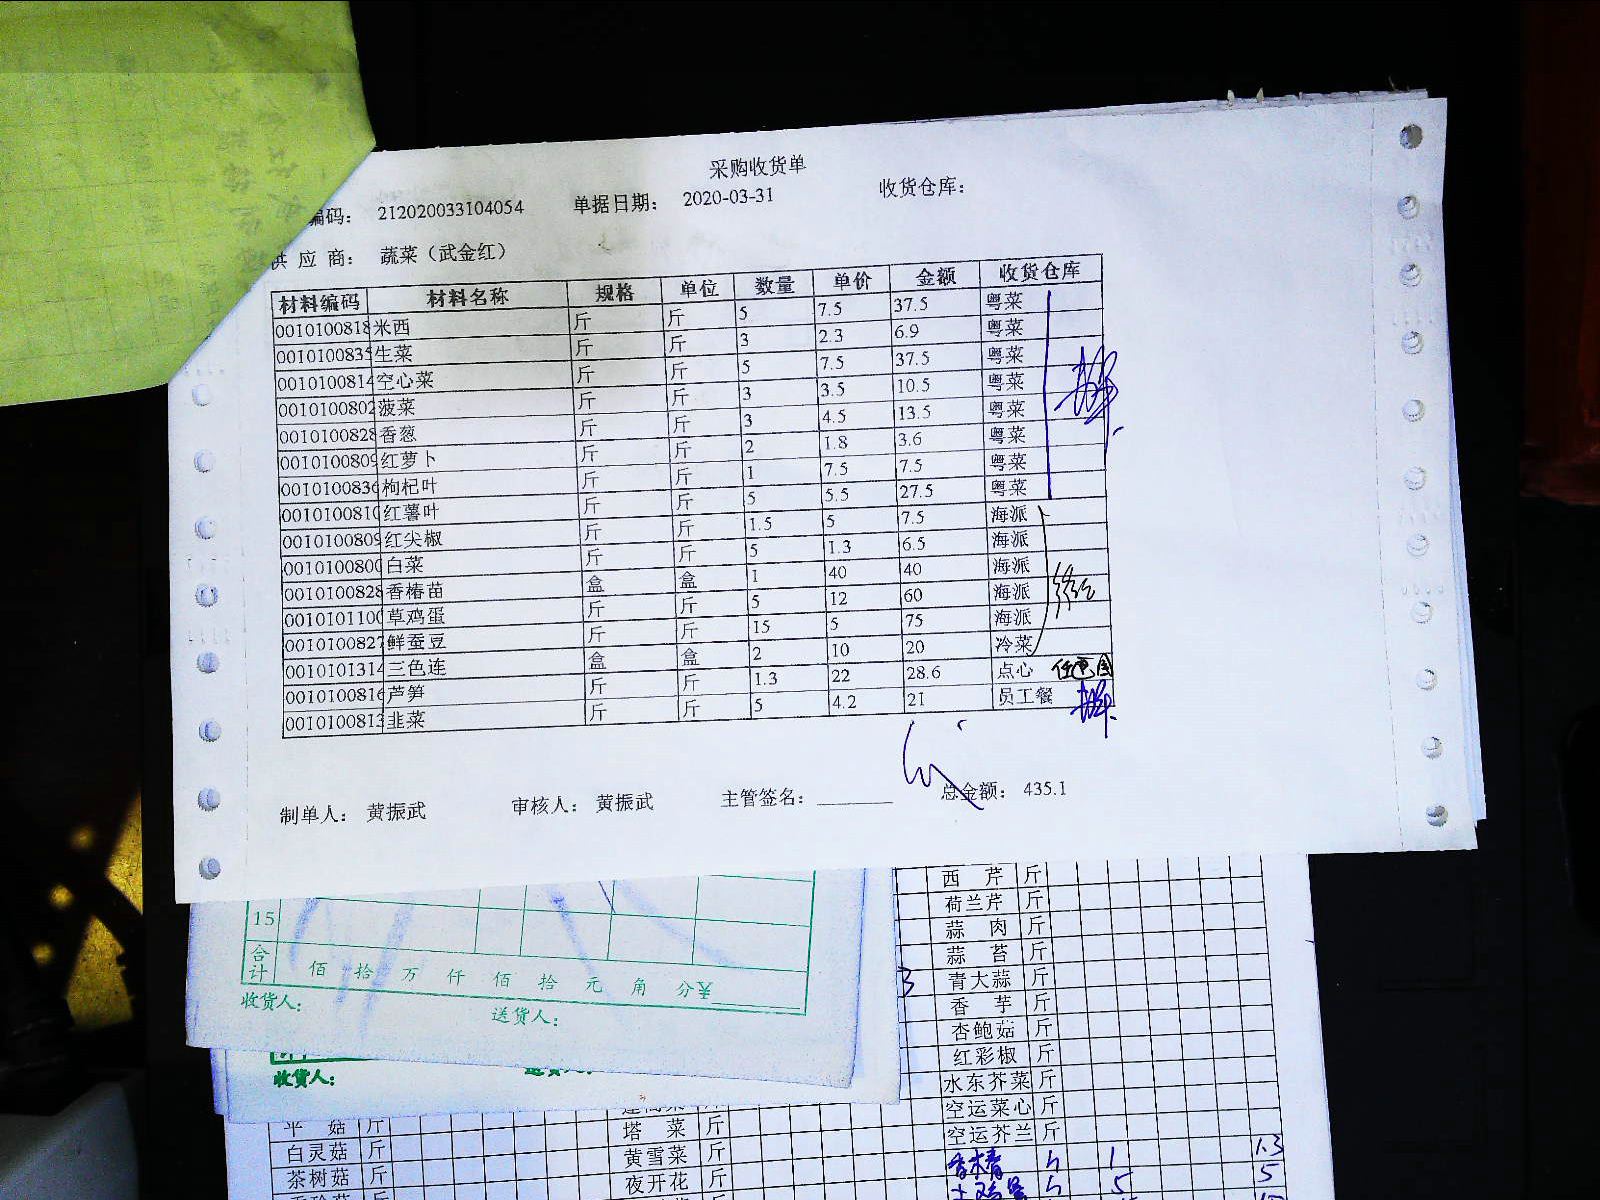 采购收货单
编码： 212020033104054 单据日期： 2020-03-31 收货仓库：
供 应 商： 蔬菜（武金红）
材料编码 材料名称 规格 单位 数量 单价 金额 收货仓库
0010100818 米西 斤 斤 5 7.5 37.5 粤菜
0010100835 生菜 斤 斤 3 2.3 6.9 粤菜
0010100814 空心菜 斤 斤 5 7.5 37.5 粤菜
0010100802 菠菜 斤 斤 3 3.5 10.5 粤菜
0010100828 香葱 斤 斤 3 4.5 13.5 粤菜
0010100809 红萝卜 斤 斤 2 1.8 3.6 粤菜
0010100836 枸杞叶 斤 斤 1 7.5 7.5 粤菜
0010100810 红薯叶 斤 斤 5 5.5 27.5 粤菜
0010100809 红尖椒 斤 斤 1.5 5 7.5 海派
0010100800 白菜 斤 斤 5 1.3 6.5 海派
0010100828 香椿苗 盒 盒 1 40 40 海派
0010101100 草鸡蛋 斤 斤 5 12 60 海派
0010100827 鲜蚕豆 斤 斤 15 5 75 海派
0010101314 三色连 盒 盒 2 10 20 冷菜
0010100816 芦笋 斤 斤 1.3 22 28.6 点心
0010100813 韭菜 斤 斤 5 4.2 21 员工餐
制单人： 黄振武 审核人： 黄振武 主管签名： 总金额： 435.1
15
合计 佰 拾 万 仟 佰 拾 元 角 分￥
收货人： 送货人：
收货人：
西 芹 斤
荷兰芹 斤
蒜 肉 斤
蒜 苔 斤
3 青大蒜 斤
香 芋 斤
杏鲍菇 斤
红彩椒 斤
水东芥菜 斤
空运菜心 斤
平 菇 斤 塔 菜 斤 空运芥兰 斤
白灵菇 斤 黄雪菜 斤 1 1.3
茶树菇 斤 夜开花 斤 5 5